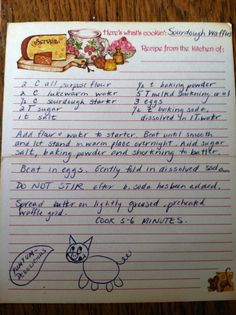 Here's what's cookin': Sourdough Waffles
Recipe from the kitchen of:
2 C all purpose flour ½ t baking powder
2 C lukewarm water 5 T melted shortening or oil
½ C sourdough starter 3 eggs
2 T sugar ½ t baking soda,
1 t salt dissolved in 1 T. water
Add flour & water to starter. Beat until smooth
and let stand in warm place overnight. Add sugar
salt, baking powder and shortening to batter.
Beat in eggs. Gently fold in dissolved soda.
DO NOT STIR after b. soda has been added.
Spread batter on lightly greased, preheated
waffle grid.
COOK 5-6 MINUTES.